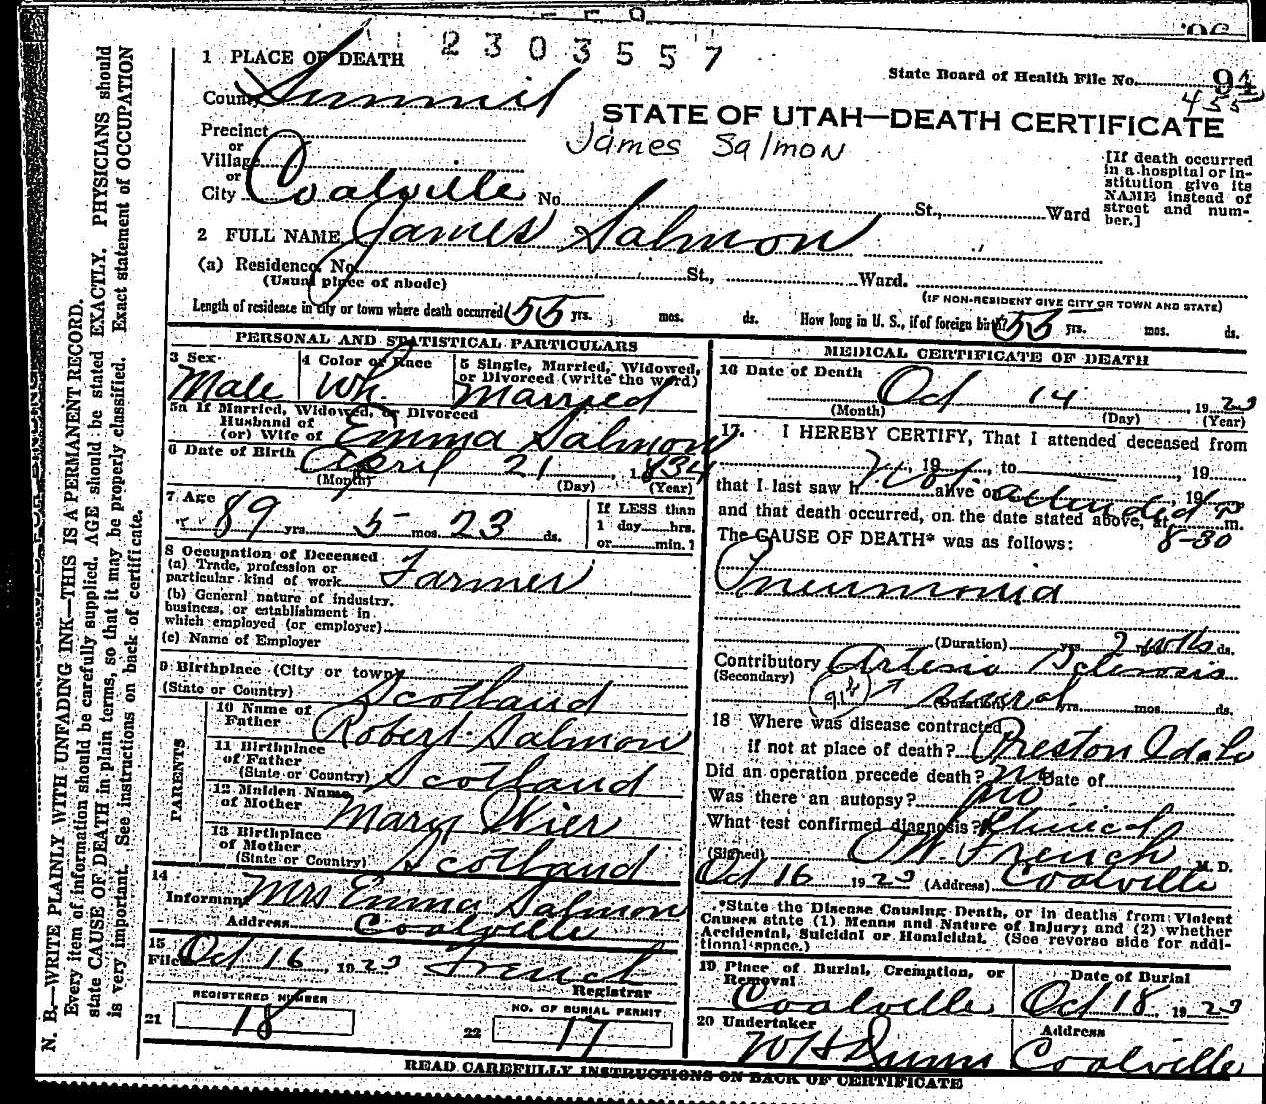 2303557
1 PLACE OF DEATH
State Board of Health File No. 94
455
County Summit
STATE OF UTAH—DEATH CERTIFICATE
James Salmon
Precinct
or
Village
or
City Coalville No. St., Ward
[If death occurred
in a hospital or in-
stitution give its
NAME instead of
street and num-
ber.]
2 FULL NAME James Salmon
(a) Residence, No. St., Ward.
(Usual place of abode)
(IF NON-RESIDENT GIVE CITY OR TOWN AND STATE)
Length of residence in city or town where death occurred 55 yrs. mos. ds. How long in U. S., if of foreign birth? 55 yrs. mos. ds.
PERSONAL AND STATISTICAL PARTICULARS
3 Sex Male
4 Color or Race Wh.
5 Single, Married, Widowed,
or Divorced (write the word)
Married
5a If Married, Widowed, or Divorced
Husband of
(or) Wife of Emma Salmon
6 Date of Birth April 21, 1834
(Month) (Day) (Year)
7 Age
89 yrs. 5 mos. 23 ds.
If LESS than
1 day hrs.
or min.?
8 Occupation of Deceased
(a) Trade, profession or
particular kind of work Farmer
(b) General nature of industry,
business, or establishment in
which employed (or employer)
(c) Name of Employer
9 Birthplace (City or town)
(State or Country) Scotland
PARENTS
10 Name of
Father Robert Salmon
11 Birthplace
of Father
(State or Country) Scotland
12 Maiden Name
of Mother Mary Wier
13 Birthplace
of Mother
(State or Country) Scotland
14
Informant Mrs Emma Salmon
Address Coalville
15
Filed Oct 16, 1923 French
Registrar
REGISTERED NUMBER
21 18
NO. OF BURIAL PERMIT
22 17
MEDICAL CERTIFICATE OF DEATH
16 Date of Death
Oct 14 1923
(Month) (Day) (Year)
17. I HEREBY CERTIFY, That I attended deceased from
Not, 19, to, 19
that I last saw h alive on attended, 19
and that death occurred, on the date stated above, at 8-30 P m.
The CAUSE OF DEATH* was as follows:
Pneumonia
(Duration) yrs. 2 ds.
Contributory Arterio Sclerosis
(Secondary)
several
(Duration) yrs. mos. ds.
18 Where was disease contracted
if not at place of death? Preston Idaho
Did an operation precede death? no Date of
Was there an autopsy? no
What test confirmed diagnosis? Clinical
(Signed) O W. French M. D.
Oct 16 1923 (Address) Coalville
*State the Disease Causing Death, or in deaths from Violent
Causes state (1) Means and Nature of Injury; and (2) whether
Accidental, Suicidal or Homicidal. (See reverse side for addi-
tional space.)
19 Place of Burial, Cremation, or
Removal
Coalville
Date of Burial
Oct 18, 1923
20 Undertaker
W H Dunn
Address
Coalville
READ CAREFULLY INSTRUCTIONS ON BACK OF CERTIFICATE
N. B.—WRITE PLAINLY WITH UNFADING INK—THIS IS A PERMANENT RECORD.
Every item of information should be carefully supplied. AGE should be stated EXACTLY. PHYSICIANS should
state CAUSE OF DEATH in plain terms, so that it may be properly classified. Exact statement of OCCUPATION
is very important. See instructions on back of certificate.